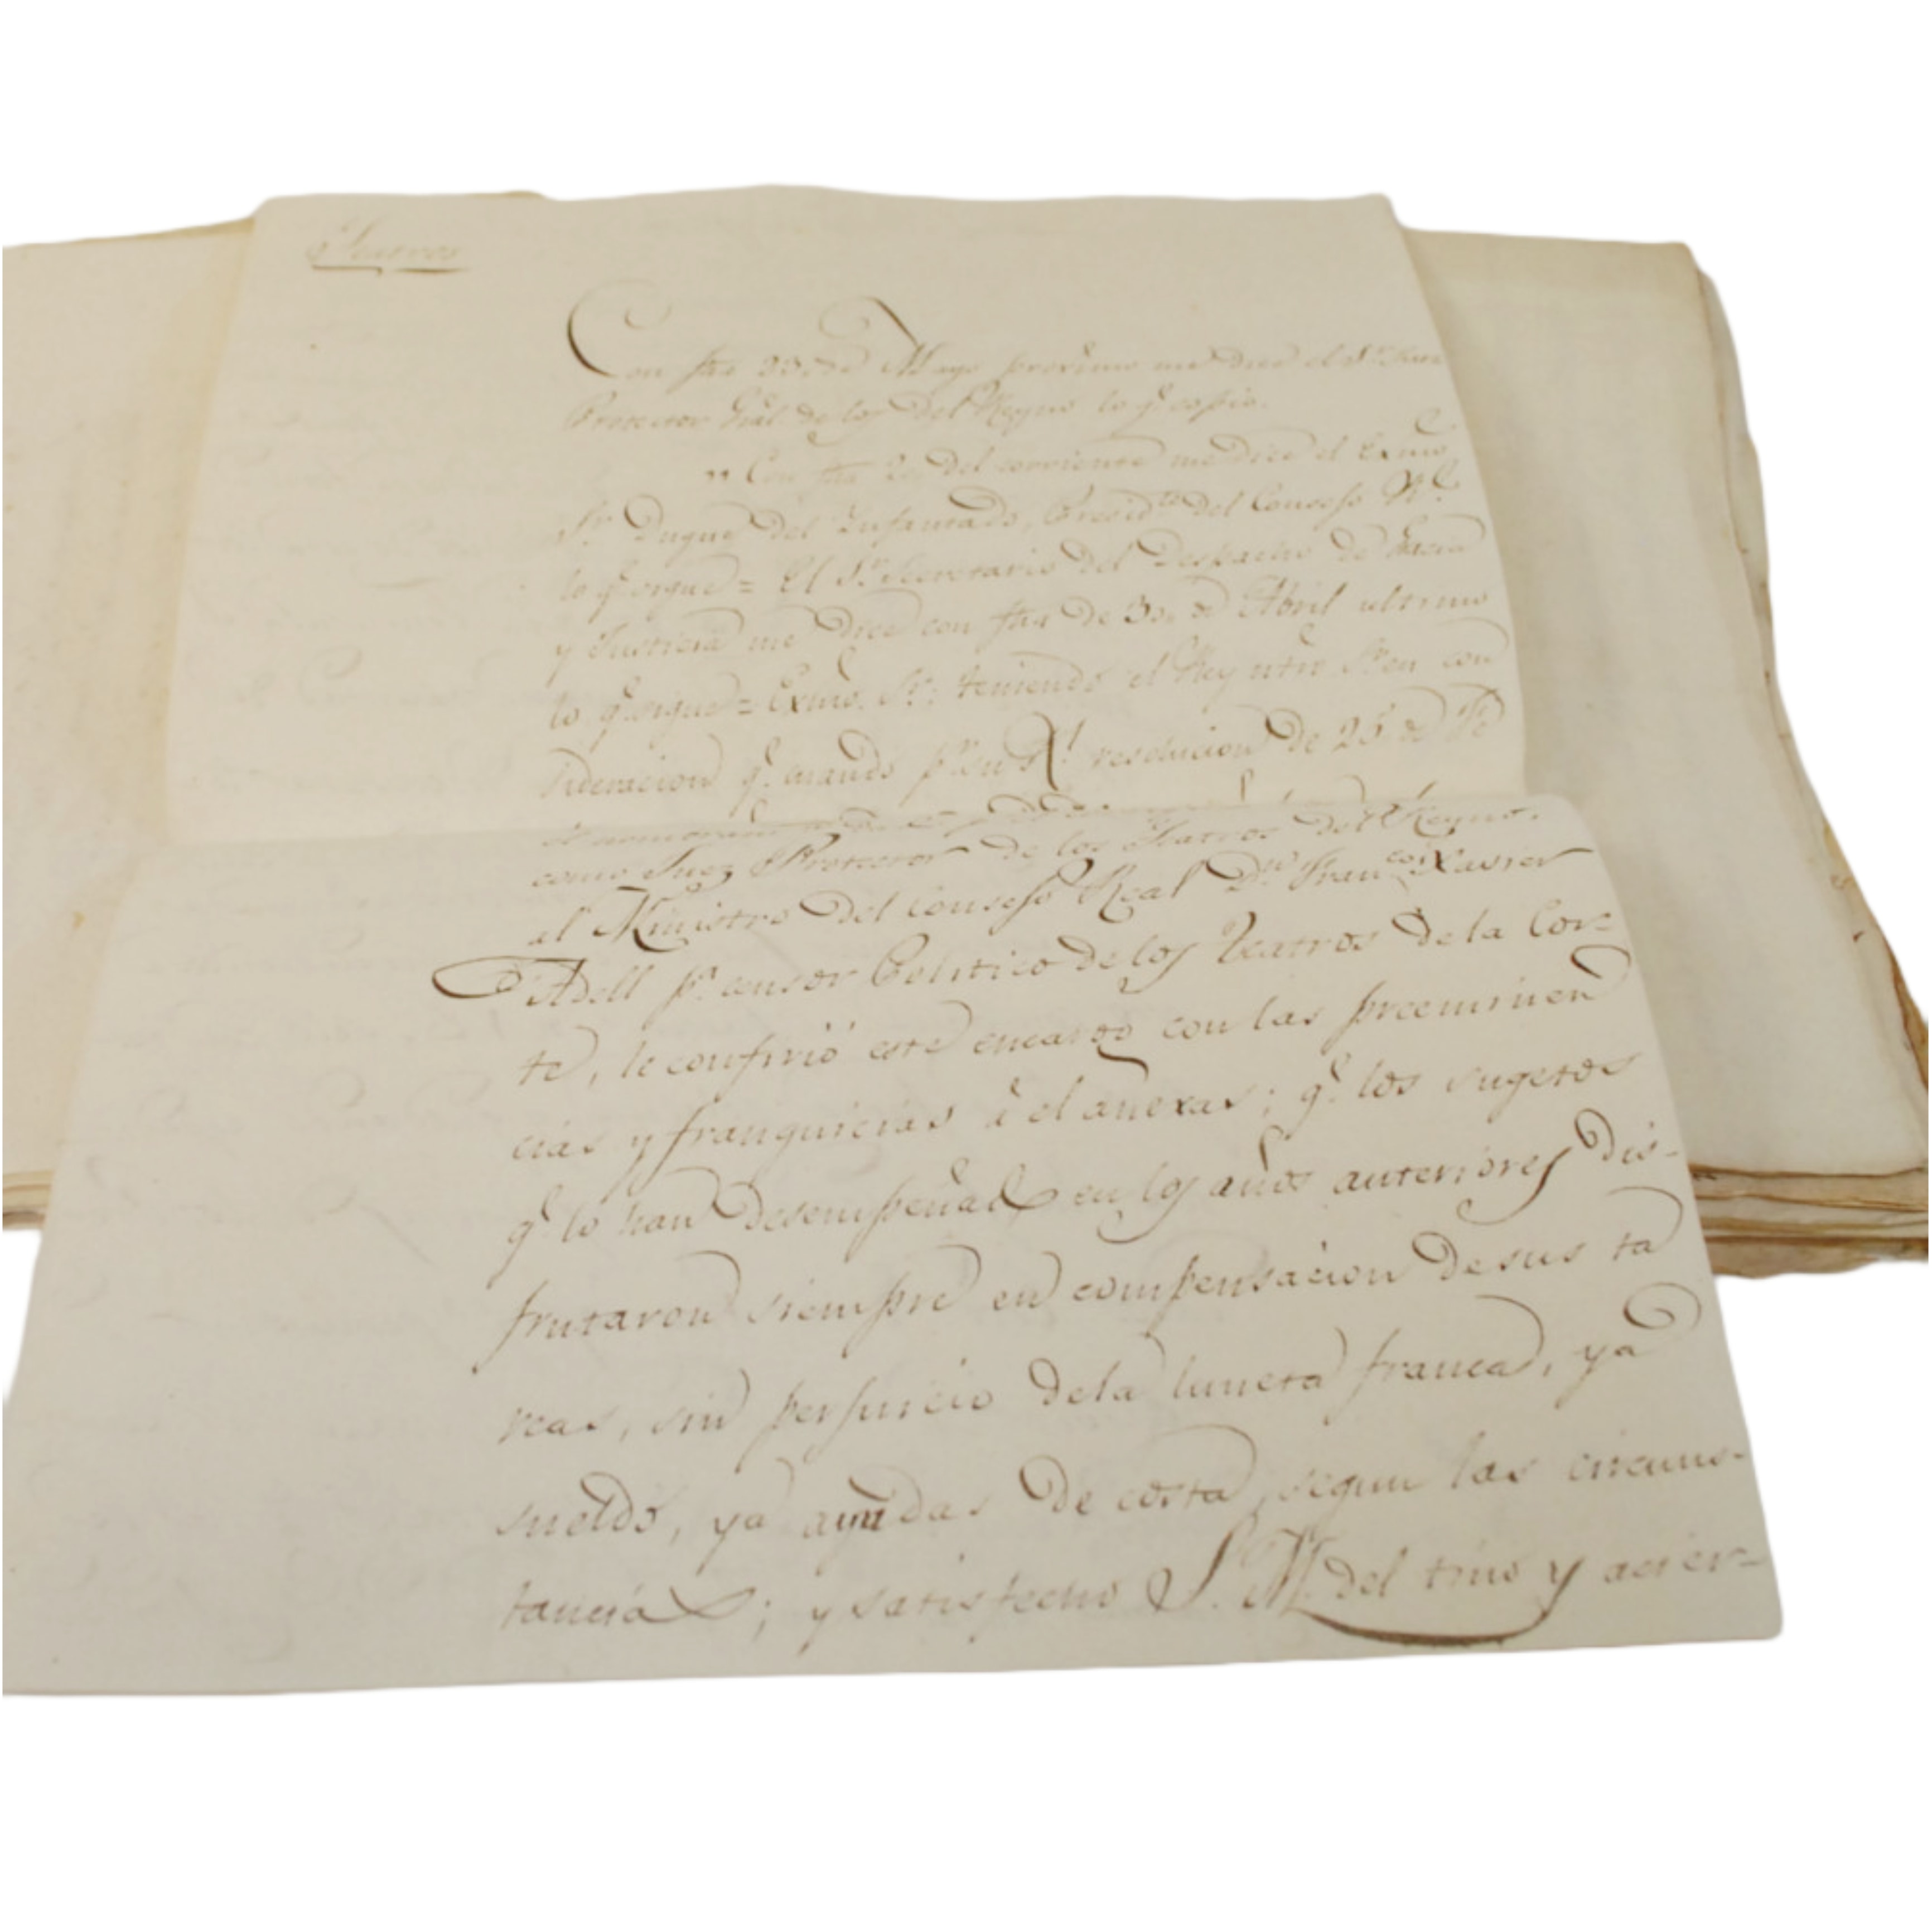 Teatros
Con fha 23 de Mayo proximo me dice el Sr. Juez
Protector Gral de los del Reyno lo q.e copio.
" Con fha 20 del corriente me dice el Exmo
Sr. Duque del Infantado, Presid.te del Consejo Rl.
lo q.e sigue = El Sr. Secretario del Despacho de Gracia
y Justicia me dice con fha de 30 de Abril ultimo
lo q.e sigue = Exmo. Sr.: teniendo el Rey ntro Sr. en con
sideracion q.e cuando pr. su Rl. resolucion de 25 de
como Juez Protector de los Teatros del Reyno,
al Ministro del Consejo Real Dn. Fran.co Xavier
Adell pr. censor Politico de los Teatros de la Cor-
te, le confirió este encargo con las preeminen
cias y franquicias á el anexas; q.e los sugetos
q.e lo han desempeñado en los años anteriores dis-
frutaron siempre en compensacion de sus ta
reas, sin perjuicio de la luneta franca, ya
sueldo, ya ayudas de costa segun las circuns-
tancias; y satisfecho S. M. del tino y acier-